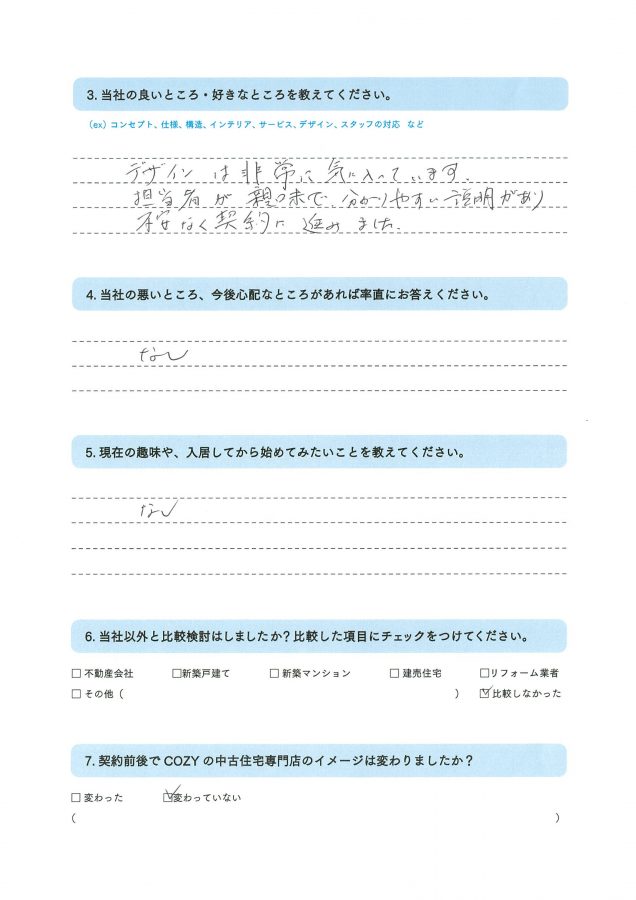 3. 当社の良いところ・好きなところを教えてください。
(ex) コンセプト、仕様、構造、インテリア、サービス、デザイン、スタッフの対応 など
デザインは非常に気に入っています。
担当者が親味で、分かりやすい説明があり
不安なく契約に進みました。
4. 当社の悪いところ、今後心配なところがあれば率直にお答えください。
なし
5. 現在の趣味や、入居してから始めてみたいことを教えてください。
なし
6. 当社以外と比較検討はしましたか?比較した項目にチェックをつけてください。
□ 不動産会社 □新築戸建て □ 新築マンション □ 建売住宅 □リフォーム業者
□ その他 ( ) ☑比較しなかった
7. 契約前後でCOZYの中古住宅専門店のイメージは変わりましたか?
□ 変わった ☑変わっていない
( )